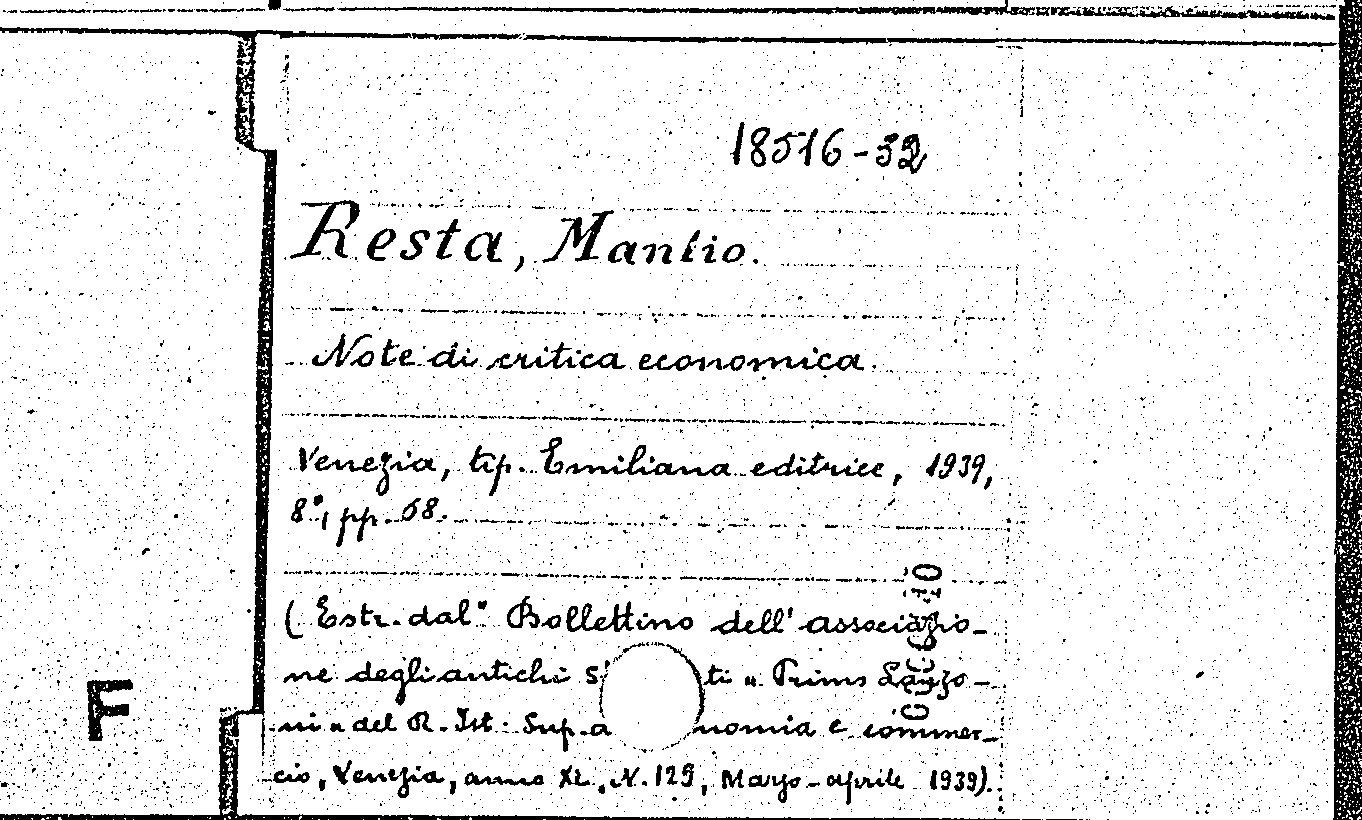 18516-32
Resta, Manlio.
Note di critica economica.
Venezia, tip. Emiliana editrice, 1939,
8°, pp. 68.
( Estr. dal " Bollettino dell' associazio-
ne degli antichi ti " Primo Lanzo-
ni " del R. Ist. Sup. nomia e commer-
cio, Venezia, anno XL, N. 129, Marzo-aprile 1939).
F